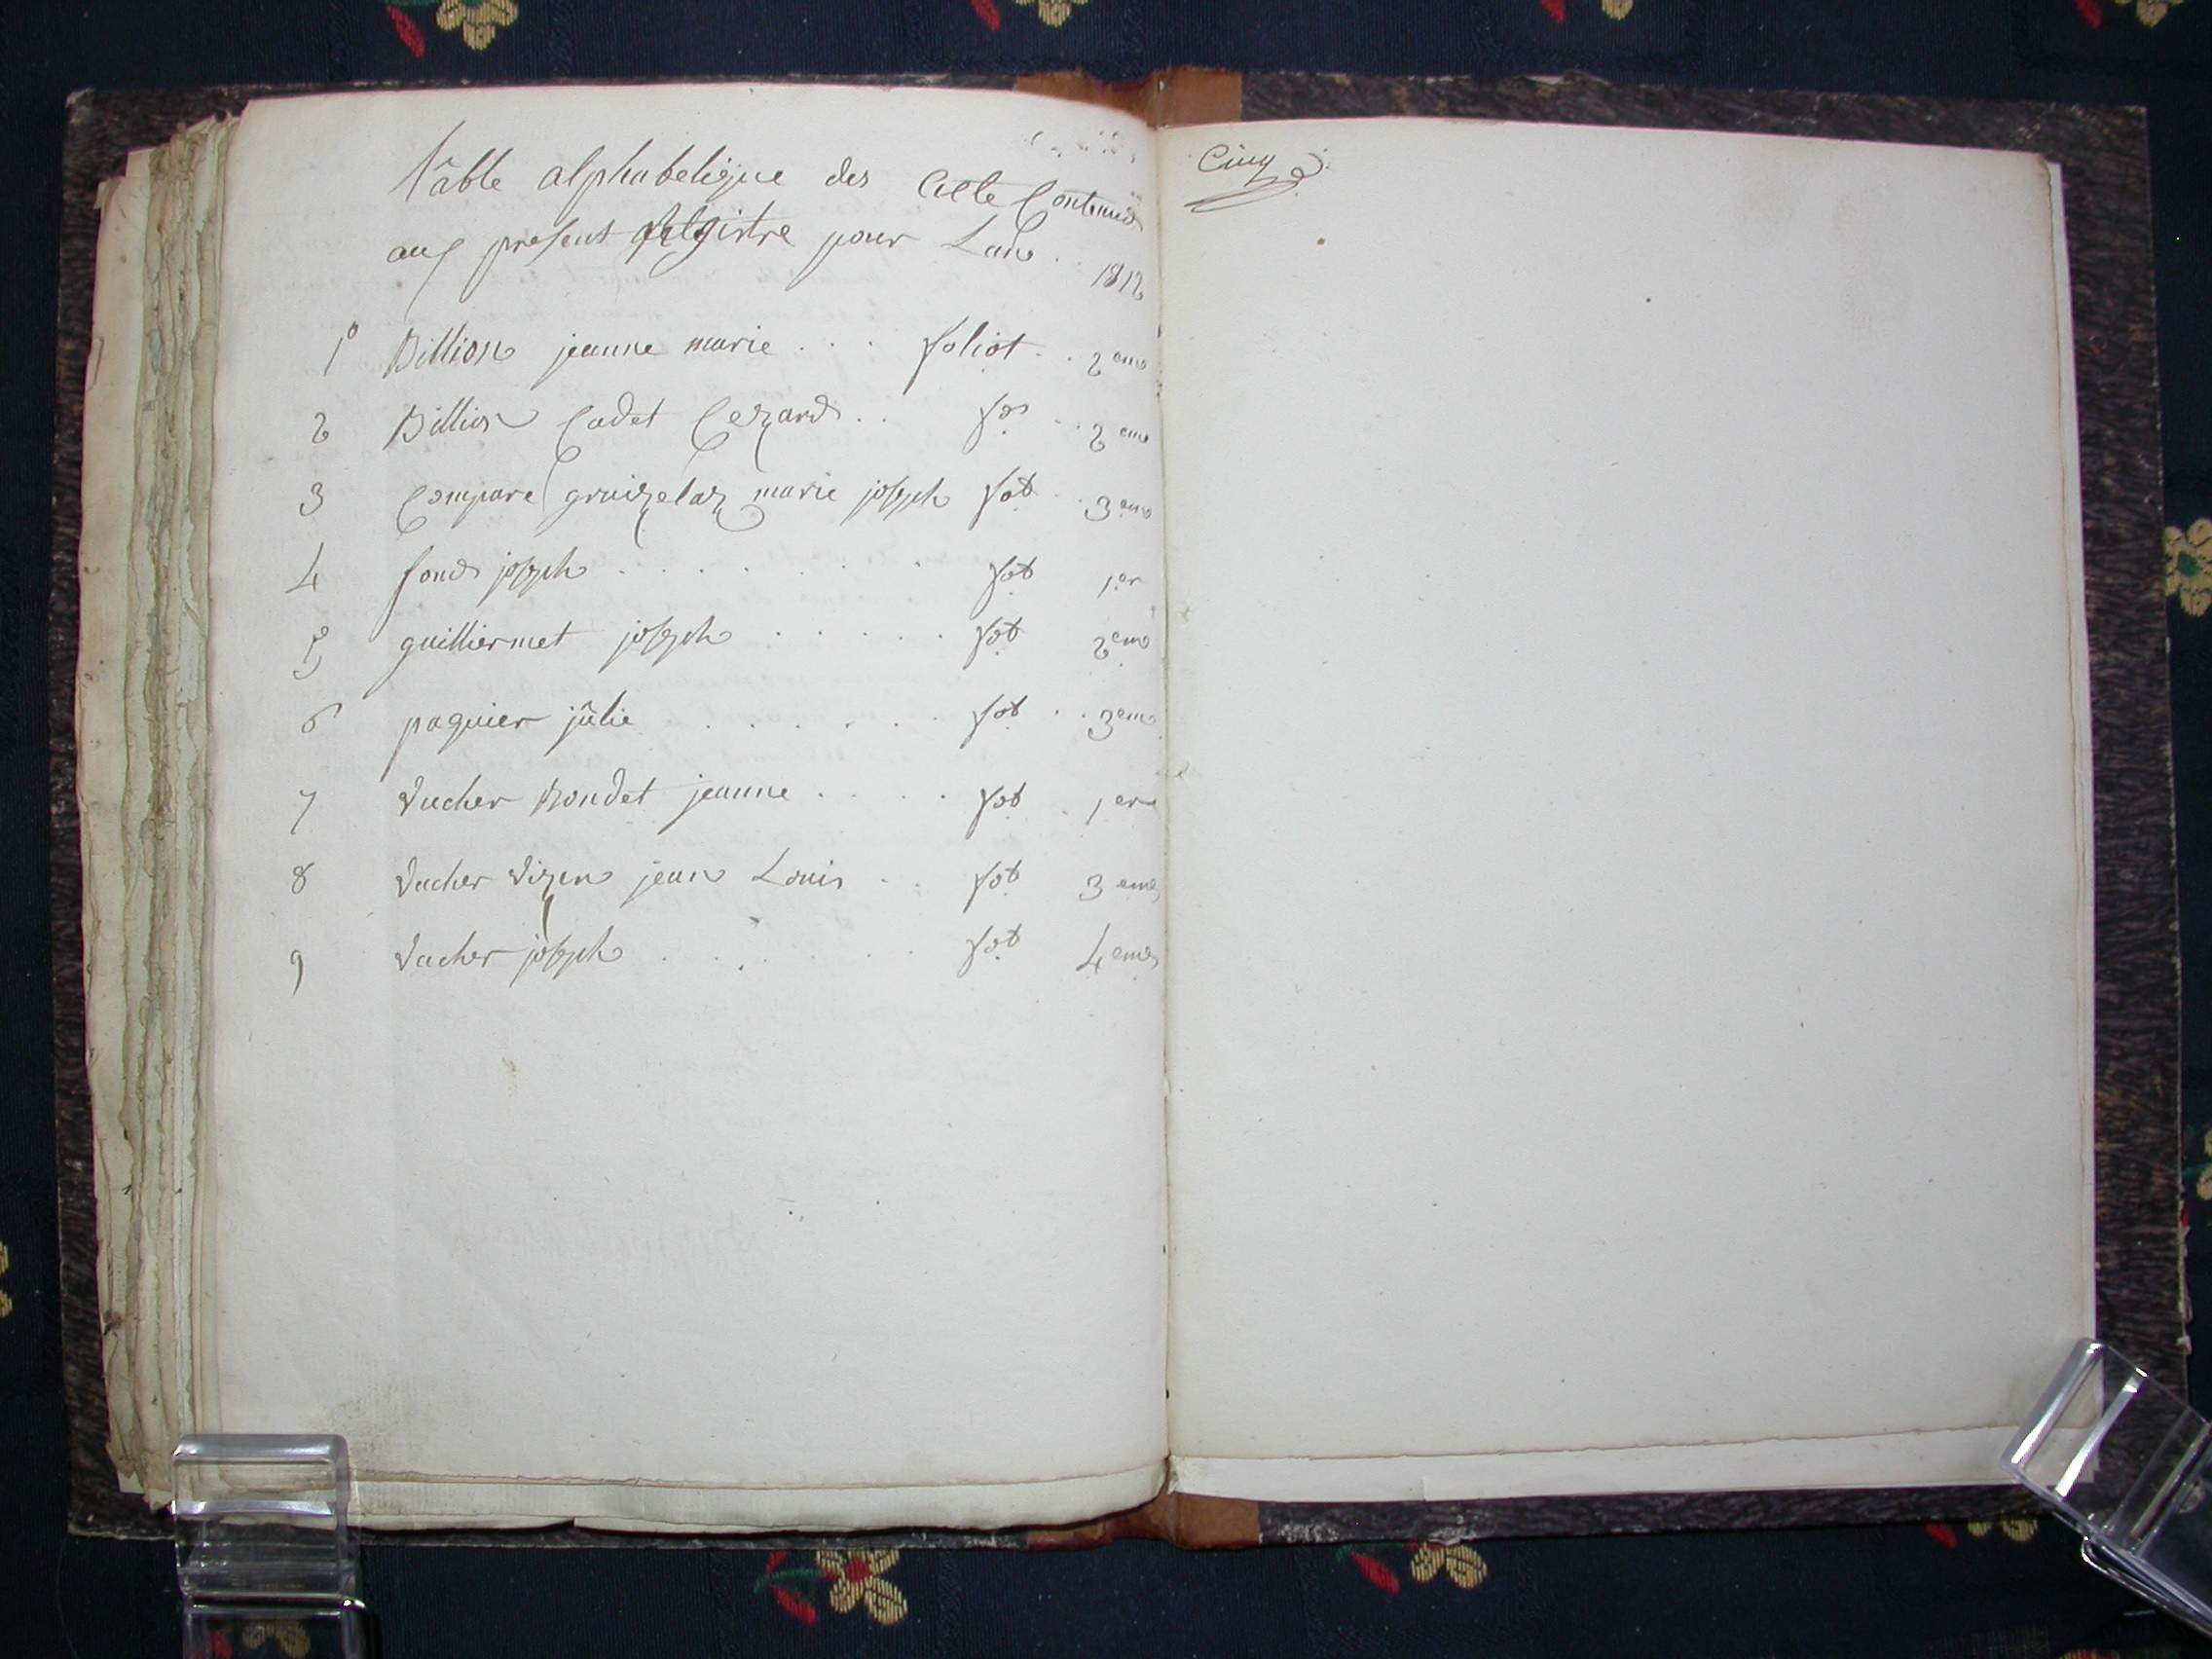 Table alphabetique des acte Contenus
aux present Registre pour Lan . . 1812
1º Billion jeanne marie . . . foliot . . 2 eme
2 Billion Cadet Cezard . . fot . . 2 eme
3 Compare gruizelaz marie joseph fot . . 3 eme
4 fond joseph . . . . . . . fot 1 er
5 guilliermet joseph . . . . . fot 2 eme
6 paquier julie . . . . . . fot . . 3 eme
7 Vucher Rondet jeanne . . . . fot . 1 er
8 Vucher Vizen jean Louis . . fot 3 eme
9 Vucher joseph . . . . . . . fot 4 eme
Cinq